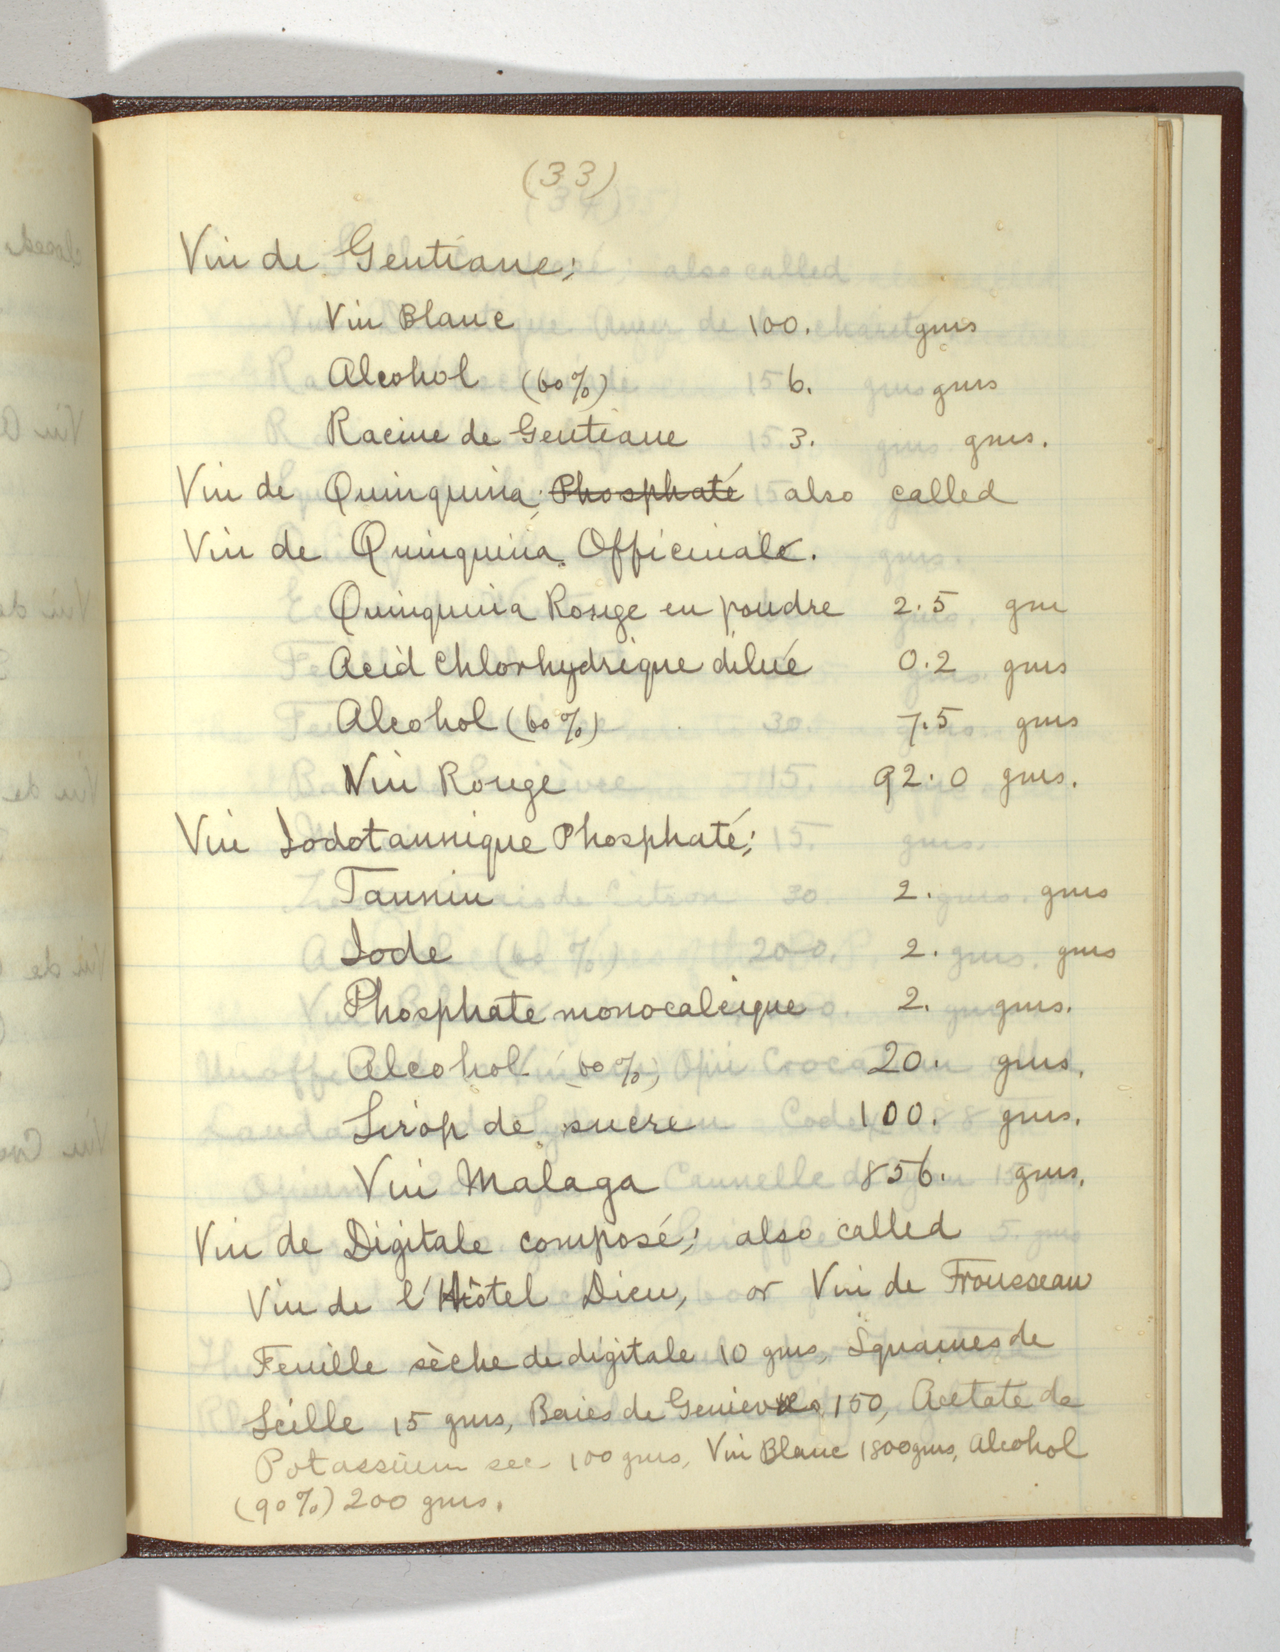 (33)
Vin de Gentiane;
Vin Blanc 100. gms
Alcohol (60%) 6. gms
Racine de Gentiane 3. gms.
Vin de Quinquina; Phosphaté also called
Vin de Quinquina Officinale.
Quinquina Rouge en poudre 2.5 gm
Acid Chlorhydrique dilué 0.2 gms
Alcohol (60%) 7.5 gms
Vin Rouge 92.0 gms.
Vin Iodotannique Phosphaté;
Tannin 2. gms
Iode 2. gms
Phosphate monocalcique 2. gms.
Alcohol (60%) 20. gms.
Sirop de sucre 100. gms.
Vin Malaga 856. gms.
Vin de Digitale composé; also called
Vin de l'Hôtel Dieu, or Vin de Trousseau
Feuille sèche de digitale 10 gms, Squames de
Scille 15 gms, Baies de Genievre 150, Acetate de
Potassium sec 100 gms, Vin Blanc 1800 gms, Alcohol
(90%) 200 gms.